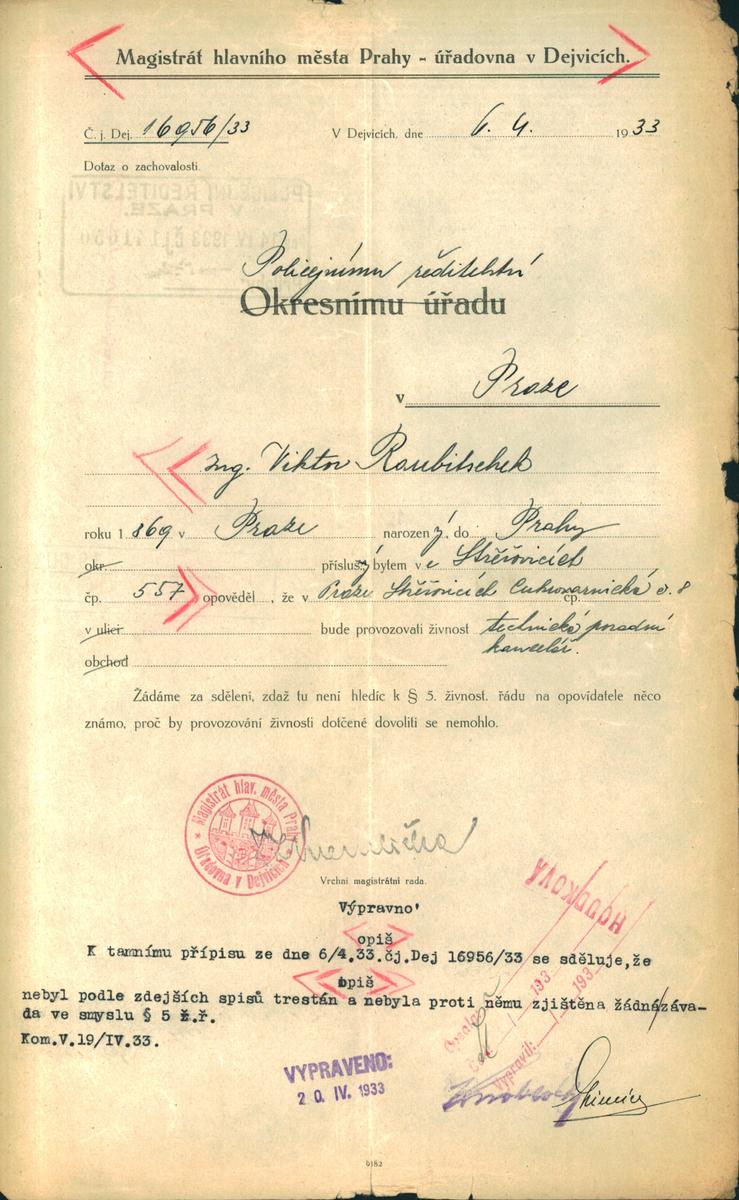 Magistrát hlavního města Prahy - úřadovna v Dejvicích.
Č. j. Dej. 16956/33 V Dejvicích, dne 6. 4. 1933
Dotaz o zachovalosti.
POLICEJNÍ ŘEDITELSTVÍ
V PRAZE.
14 IV. 1933
Policejnímu ředitelství
Okresnímu úřadu
v Praze
Ing. Viktor Raubitschek
roku 1869 v Praze narozený, do Prahy
okr. příslušný bytem ve Střešovicích
čp. 557 opověděl, že v Praze Střešovicích Cukrovarnická čp. č. 8
v ulici bude provozovati živnost technická poradní
obchod kancelář.
Žádáme za sdělení, zdaž tu není hledíc k § 5. živnost. řádu na opovídatele něco
známo, proč by provozování živnosti dotčené dovoliti se nemohlo.
Magistrát hlav. města Prahy
Úřadovna v Dejvicích
Vrchní magistrátní rada.
Výpravno'
opiš
K tamnímu přípisu ze dne 6/4.33.čj.Dej 16956/33 se sděluje,že
opiš
nebyl podle zdejších spisů trestán a nebyla proti němu zjištěna žádná/záva-
da ve smyslu § 5 ž.ř.
Kom.V.19/IV.33.
HOUDKOVÁ
193
193
Vypravil:
VYPRAVENO:
20. IV. 1933
6182